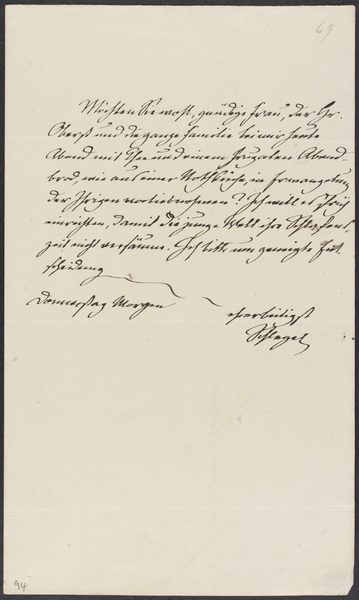 69
Möchten Sie wohl, gnädige Frau, der Hr.
Oberst und die ganze Familie bei mir heute
Abend mit Thee und einem frugalen Abend-
brod, wie aus einer Nothküche, in Ermangelung
der Ihrigen vorliebnehmen? Ich will es früh
einrichten, damit die junge Welt ihre Schlafens-
zeit nicht versäume. Ich bitte um geneigte Ent-
scheidung
Donnerstag Morgen
ehrerbietigst
Schlegel
94